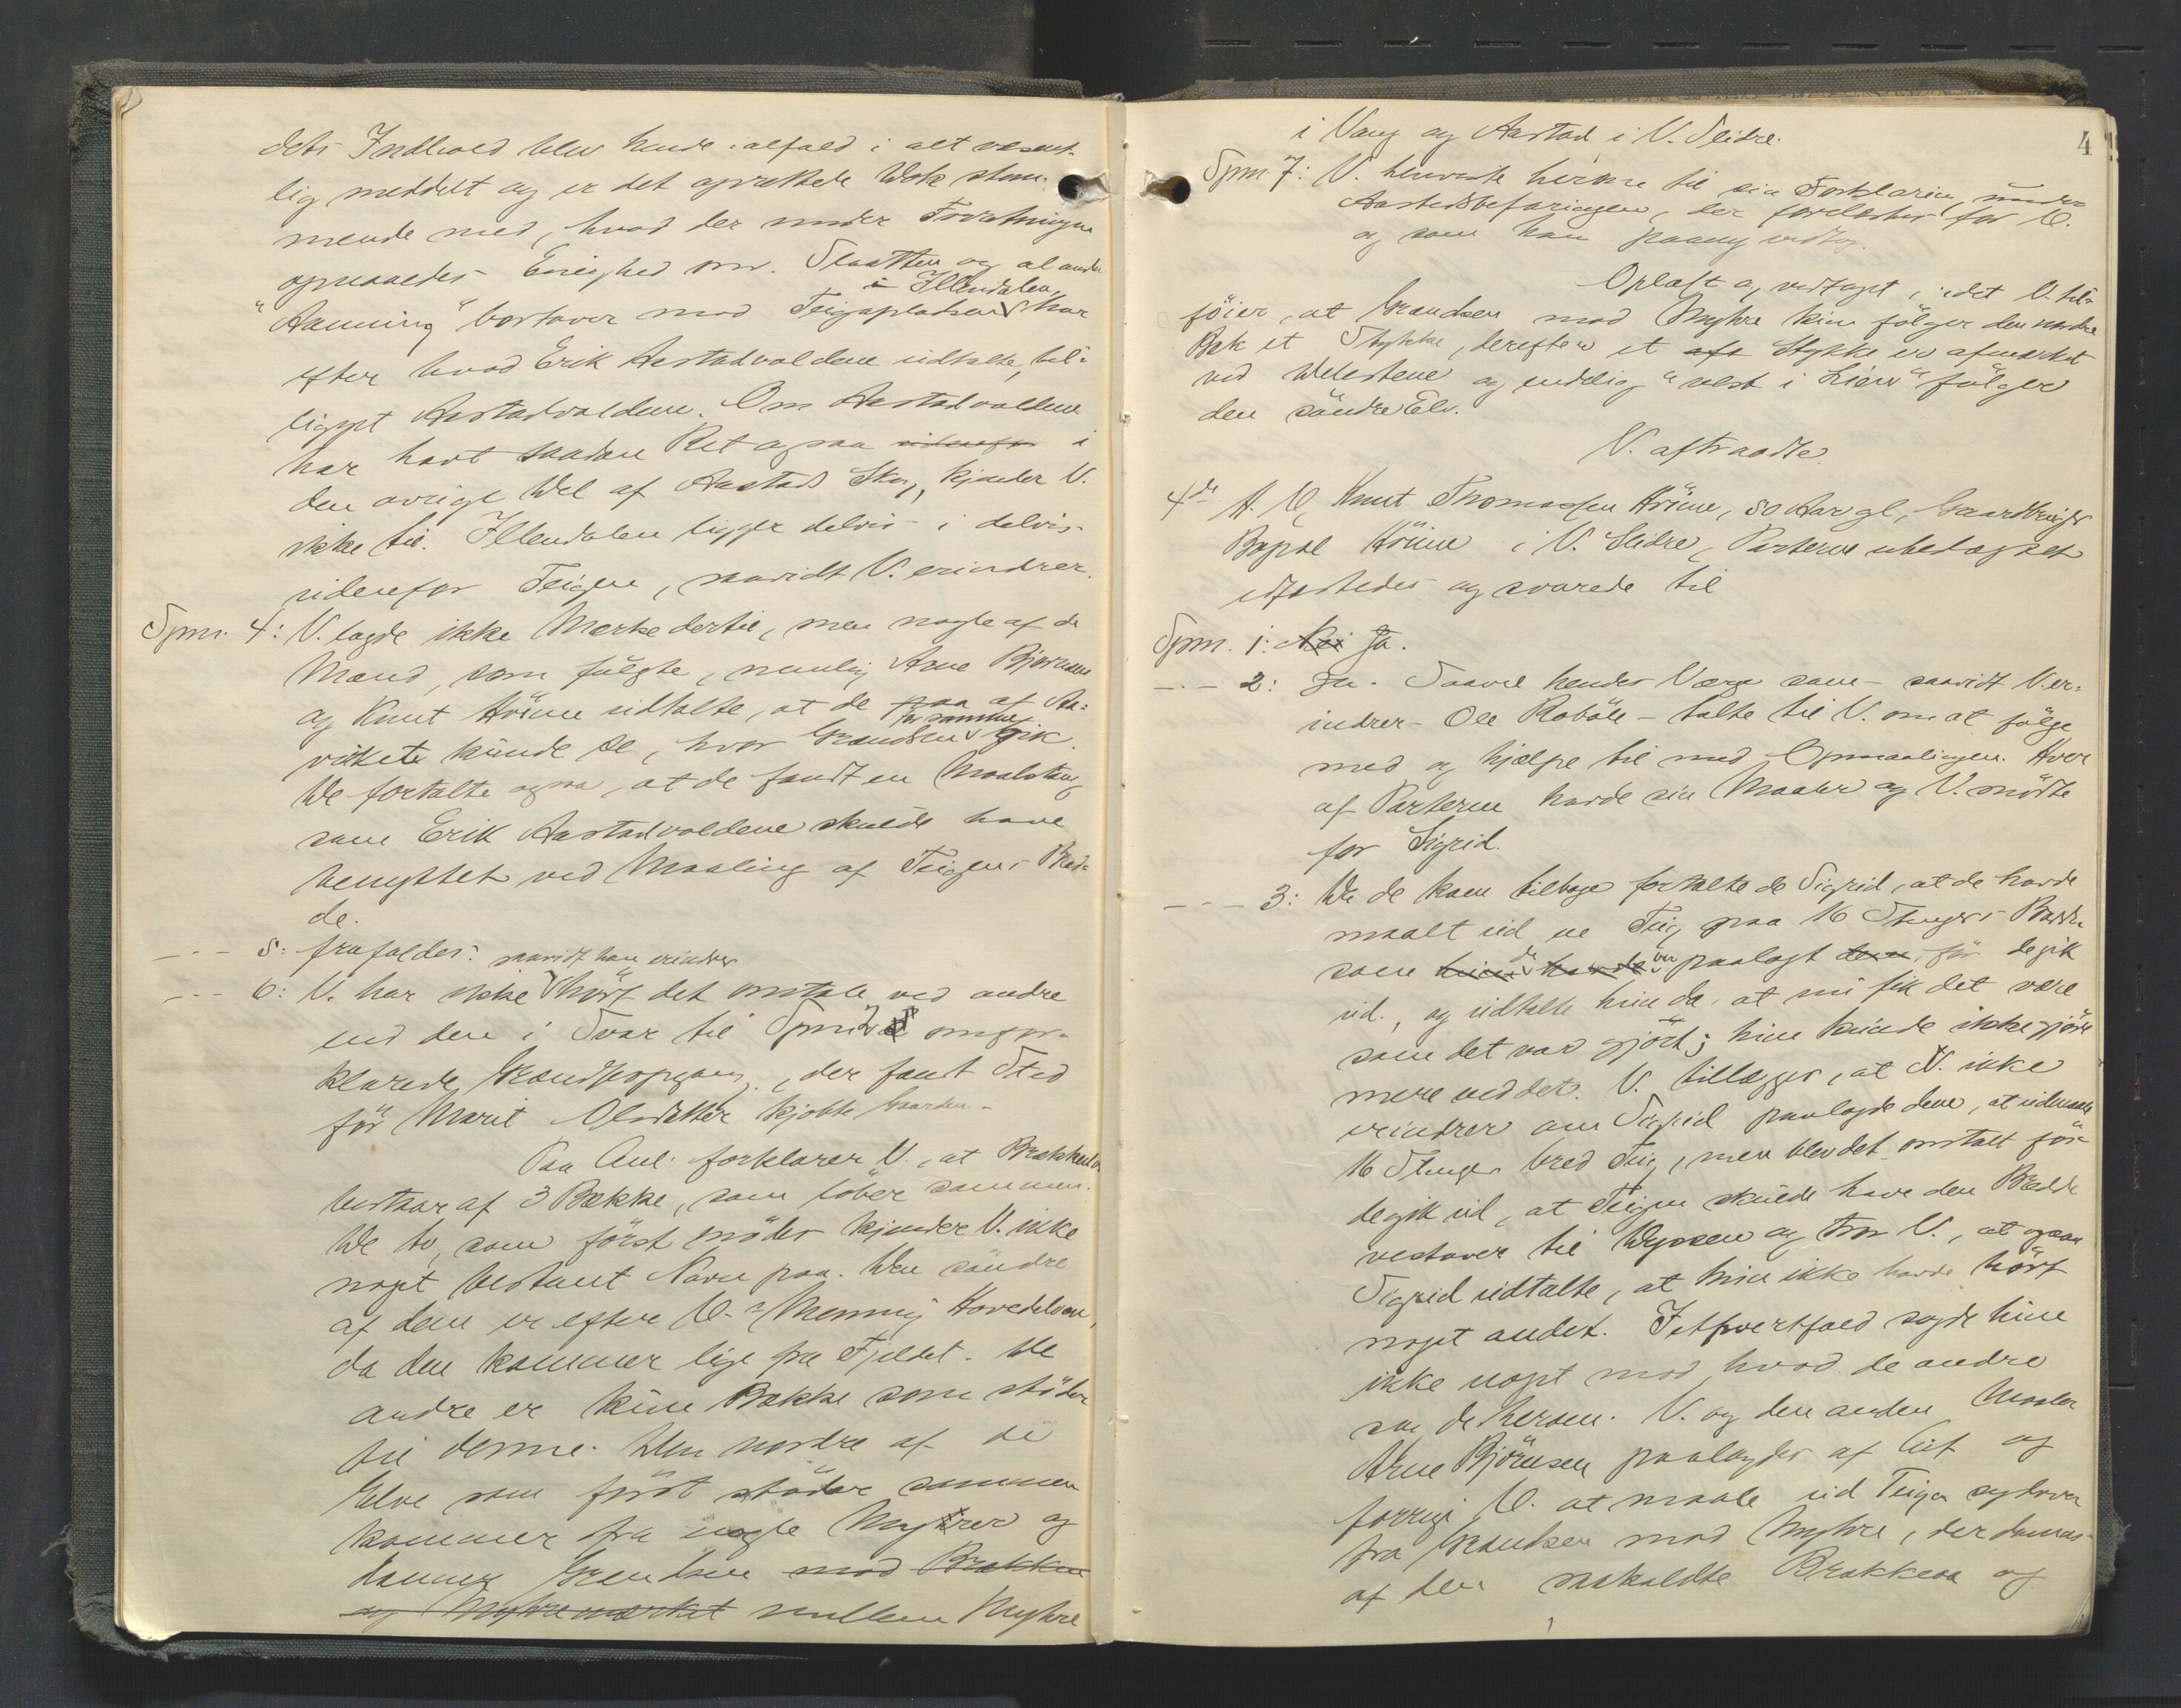 dets Indhold blev hende ialfald i alt væsent-
lig meddelt og er det oprettede Dok. stem-
mende med, hvad der under Forretningen
opnaaedes Enighed om. Slaatten og al anden
i Illendalen
"Havning" bortover mod Teigepladsen har
efter hvad Erik Aastadvolden udtalte, til-
ligget Aastadvolden. Om Aastadvolden
har havt saadan Ret ogsaa udenfor i
den øvrige Del af Aastad Skog, kjender V.
ikke til. Illendalen ligger delvis i delvis
udenfor Teigen, saavidt V. erindrer.
Spm. 4: V. lagde ikke Mærke dertil, men nogle af de
Mænd, som fulgte, nemlig Arne Bjørnsen
og Knut Høime udtalte, at de paa af Aa-
for samme
stedet kunde se, hvor Grændsen gik.
De fortalte ogsaa, at de fandt en Maalstang
som Erik Aastadvolden skulde have
benyttet ved Maaling af Teigens Bred-
de.
- " - 5: frafaldes.
saavidt han erindrer
- " - 6: V. har ikke hørt det omtale ved andre
end den i Svar til Spm. 2 omfor-
klarede Grændseopgang, der fandt Sted
før Marit Olsdatter kjøbte Gaarden.
Paa Anl. forklarer V., at Brækkeelv
bestaar af 3 Bække, som løber sammen.
De to, som først mødes kjender V. ikke
noget bestemt Navn paa. Den søndre
af dem er efter V.s Mening Hovedelven,
da den kommer lige fra Fjeldet. De
andre er kun Bække som støder
til denne. Den nordre af de
Elve som først støder sammen
kommer fra nogle Myrer og
danner Grændsen mod Brækken
og Myhremærket mellem Myhre
4
i Vang og Aastad i V. Slidre.
Spm. 7: V. henviste herom til sin Forklaring under
Aastedsbefaringen, der forelæstes for V.
og som han paany vedtog.
Oplæst og vedtaget, idet V. til-
føier, at Grændsen mod Myhre kun følger den nordre
Bæk et Stykke, derefter et afs Stykke er afmærket
ved Delestene og endelig "vest i Lien" følger
den søndre Elv.
V. aftraadte.
4de A. V. Knut Thomassen Høime, 50 Aar gl., Gaardbruger
Bopæl Høime i V. Slidre, Parterne ubeslægtet
edfæstedes og svarede til
Spm. 1: Nei Ja.
- " - 2: Ja. Saavel hendes Værge som - saavidt V. er-
indrer - Ole Robøle - talte til V. om at følge
med og hjælpe til med Opmaalingen. Hver
af Parterne havde sin Maaler og V. mødte
for Sigrid.
- " - 3: Da de kom tilbage fortalte de Sigrid, at de havde
maalt ud en Teig paa 16 Stængers Bredde
som hun de havde var paalagt dem, før de gik
ud, og udtalte hun da, at nu fik det være
som det var gjort; hun kunde ikke gjøre
mere ved det. V. tillægger, at V. ikke
erindrer om Sigrid paalagde dem, at udmaale
16 Stænger bred Teig, men blev det omtalt før
de gik ud, at Teigen skulde have den Bredde
vestover til og tror V., at ogsaa
Sigrid udtalte, at hun ikke havde hørt
noget andet. I ethvertfald sagde hun
ikke noget mod, hvad de andre
sa de herom. V. og den anden Maaler
Arne Bjørnsen paalagdes af og
forrige V. at maale ud Teigen sydover
fra Grændsen mod Myhre, der dannes
af den saakaldte Brækkeaa og